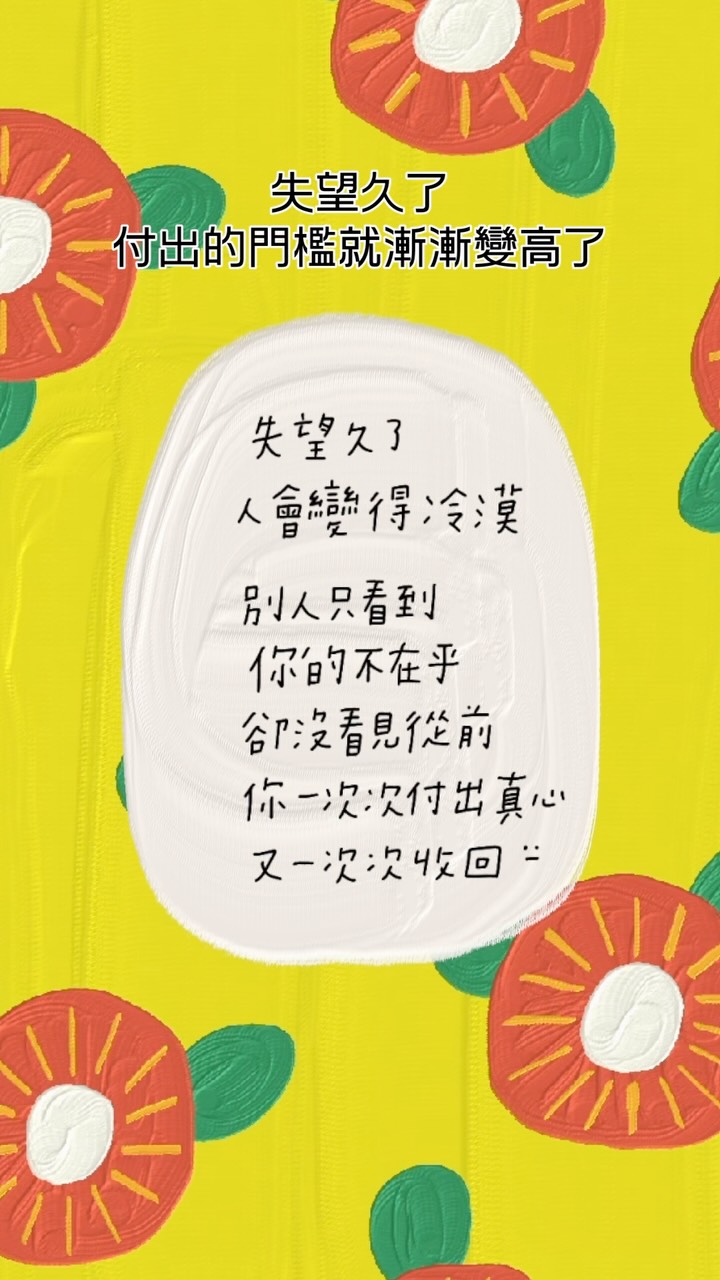 失望久了
付出的門檻就漸漸變高了
失望久了
人會變得冷漠
別人只看到
你的不在乎
卻沒看見從前
你一次次付出真心
又一次次收回